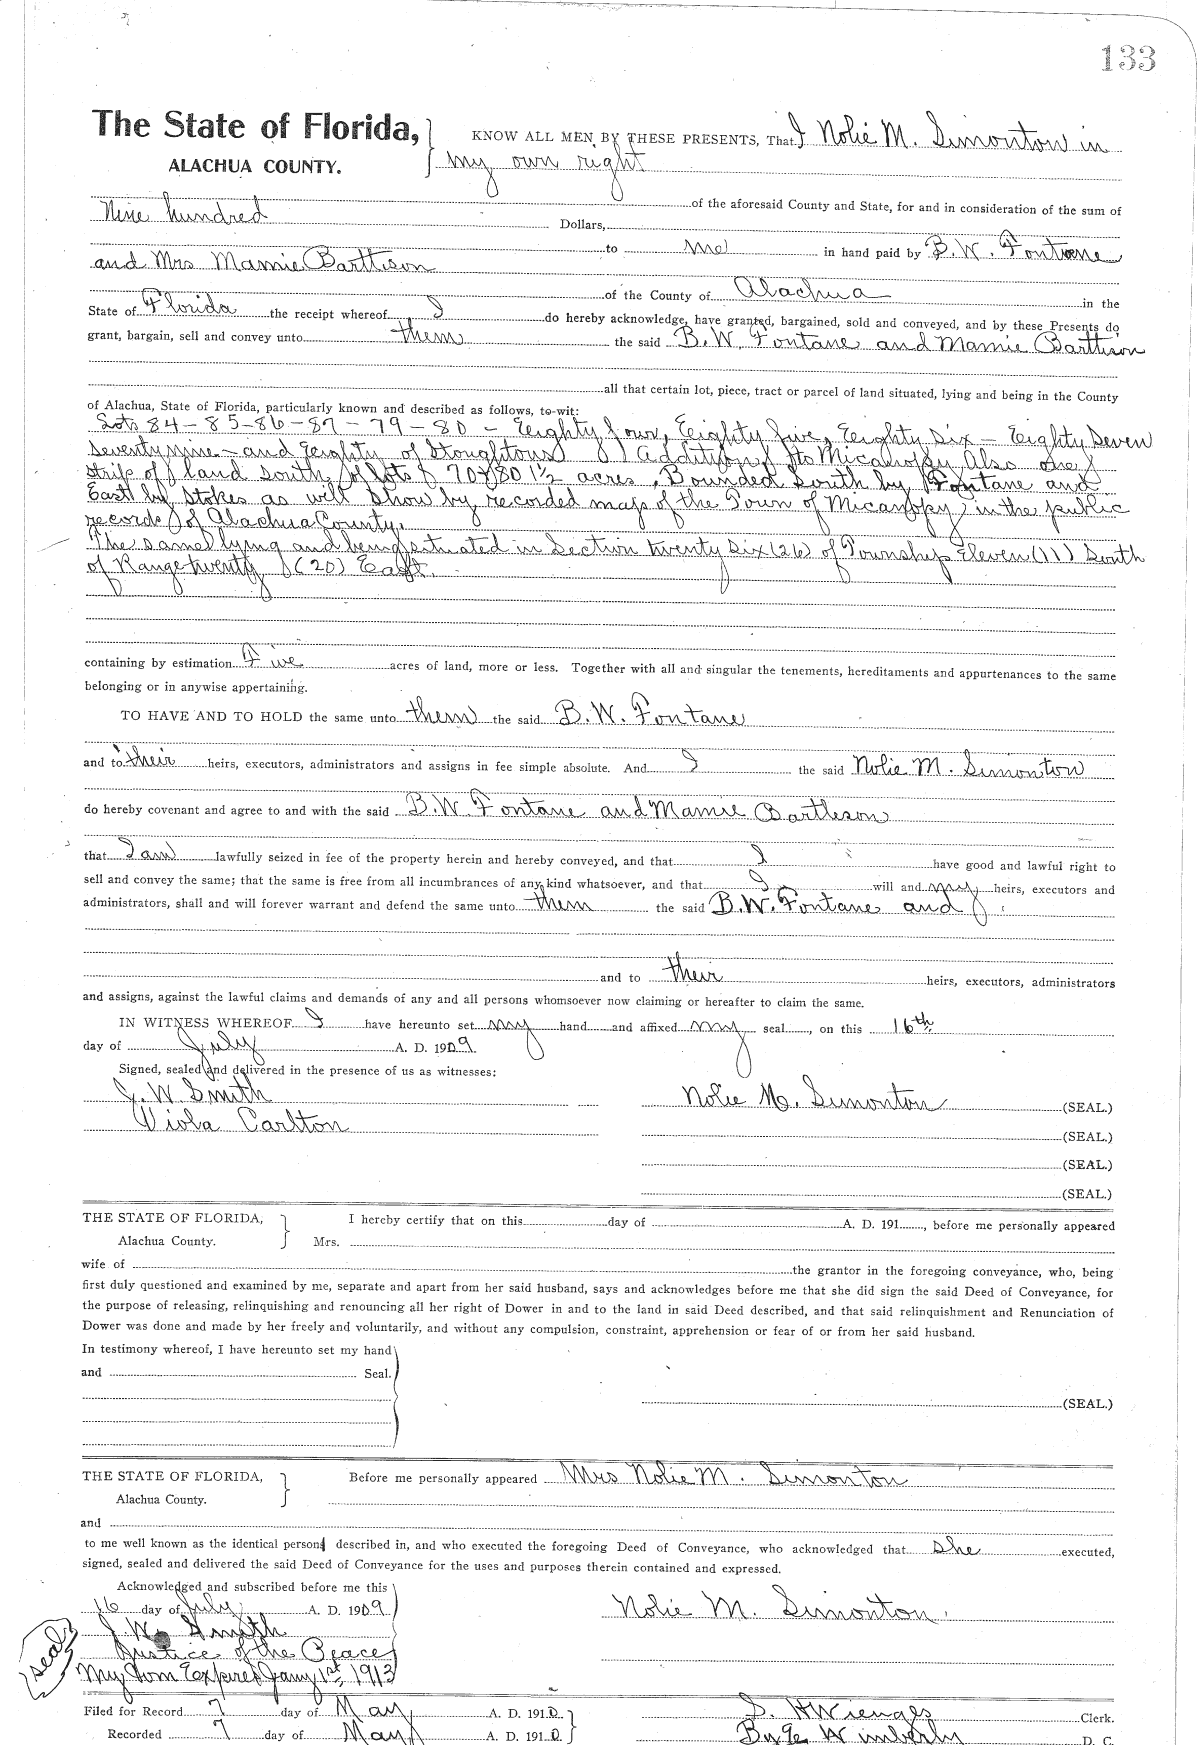 133
The State of Florida, KNOW ALL MEN BY THESE PRESENTS, That I Nolie M. Simonton in
ALACHUA COUNTY. my own right
of the aforesaid County and State, for and in consideration of the sum of
Nine hundred Dollars,
to me in hand paid by B. W. Fontane
and Mrs Mamie Barttison
of the County of Alachua in the
State of Florida the receipt whereof I do hereby acknowledge, have granted, bargained, sold and conveyed, and by these Presents do
grant, bargain, sell and convey unto them the said B. W. Fontane and Mamie Barttison
all that certain lot, piece, tract or parcel of land situated, lying and being in the County
of Alachua, State of Florida, particularly known and described as follows, to-wit:
Lots 84-85-86-87-79-80 - Eighty four, Eighty five, Eighty six - Eighty seven
seventy nine - and Eighty of Stoughtons Addition to Micanopy Also one
strip of land south of lots 80 1½ acres, Bounded South by Fontane and
East by Stokes as will show by recorded map of the Town of Micanopy, in the public
records of Alachua County.
The same lying and being situated in Section twenty six (26) of Township Eleven (11) South
of Range twenty (20) East.
containing by estimation Five acres of land, more or less. Together with all and singular the tenements, hereditaments and appurtenances to the same
belonging or in anywise appertaining.
TO HAVE AND TO HOLD the same unto them the said B. W. Fontane
and to their heirs, executors, administrators and assigns in fee simple absolute. And I the said Nolie M. Simonton
do hereby covenant and agree to and with the said B. W. Fontane and Mamie Bartleson
that I am lawfully seized in fee of the property herein and hereby conveyed, and that I have good and lawful right to
sell and convey the same; that the same is free from all incumbrances of any kind whatsoever, and that I will and my heirs, executors and
administrators, shall and will forever warrant and defend the same unto them the said B. W. Fontane and
and to their heirs, executors, administrators
and assigns, against the lawful claims and demands of any and all persons whomsoever now claiming or hereafter to claim the same.
IN WITNESS WHEREOF I have hereunto set my hand and affixed my seal, on this 16th
day of July A. D. 1909.
Signed, sealed and delivered in the presence of us as witnesses:
J. W. Smith Nolie M. Simonton (SEAL.)
Viola Carlton (SEAL.)
(SEAL.)
(SEAL.)
THE STATE OF FLORIDA, I hereby certify that on this day of A. D. 191 , before me personally appeared
Alachua County. Mrs.
wife of the grantor in the foregoing conveyance, who, being
first duly questioned and examined by me, separate and apart from her said husband, says and acknowledges before me that she did sign the said Deed of Conveyance, for
the purpose of releasing, relinquishing and renouncing all her right of Dower in and to the land in said Deed described, and that said relinquishment and Renunciation of
Dower was done and made by her freely and voluntarily, and without any compulsion, constraint, apprehension or fear of or from her said husband.
In testimony whereof, I have hereunto set my hand
and Seal.
(SEAL.)
THE STATE OF FLORIDA, Before me personally appeared Mrs Nolie M. Simonton
Alachua County.
and
to me well known as the identical person described in, and who executed the foregoing Deed of Conveyance, who acknowledged that she executed,
signed, sealed and delivered the said Deed of Conveyance for the uses and purposes therein contained and expressed.
Acknowledged and subscribed before me this
16 day of July A. D. 1909 Nolie M. Simonton
J. W. Smith
Justice of the Peace
seal My Com Expires Jany 1st, 1913
Filed for Record 7 day of May A. D. 1910. S. H Wienges Clerk.
Recorded 7 day of May A. D. 1910. By Wimberly D. C.